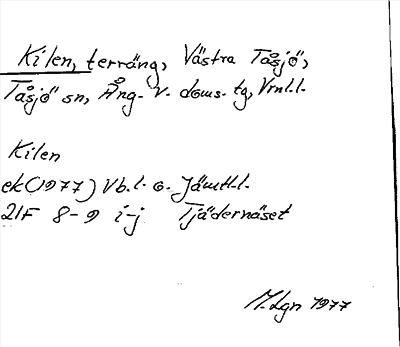 Kilen, terräng, Västra Tåsjö,
Tåsjö sn, Ång. v. doms. tg, Vrnl.l.
Kilen
ek (1977) Vb.l. o. Jämtl.l.
21F 8-9 i-j Tjädernäset
M.dgn 1977